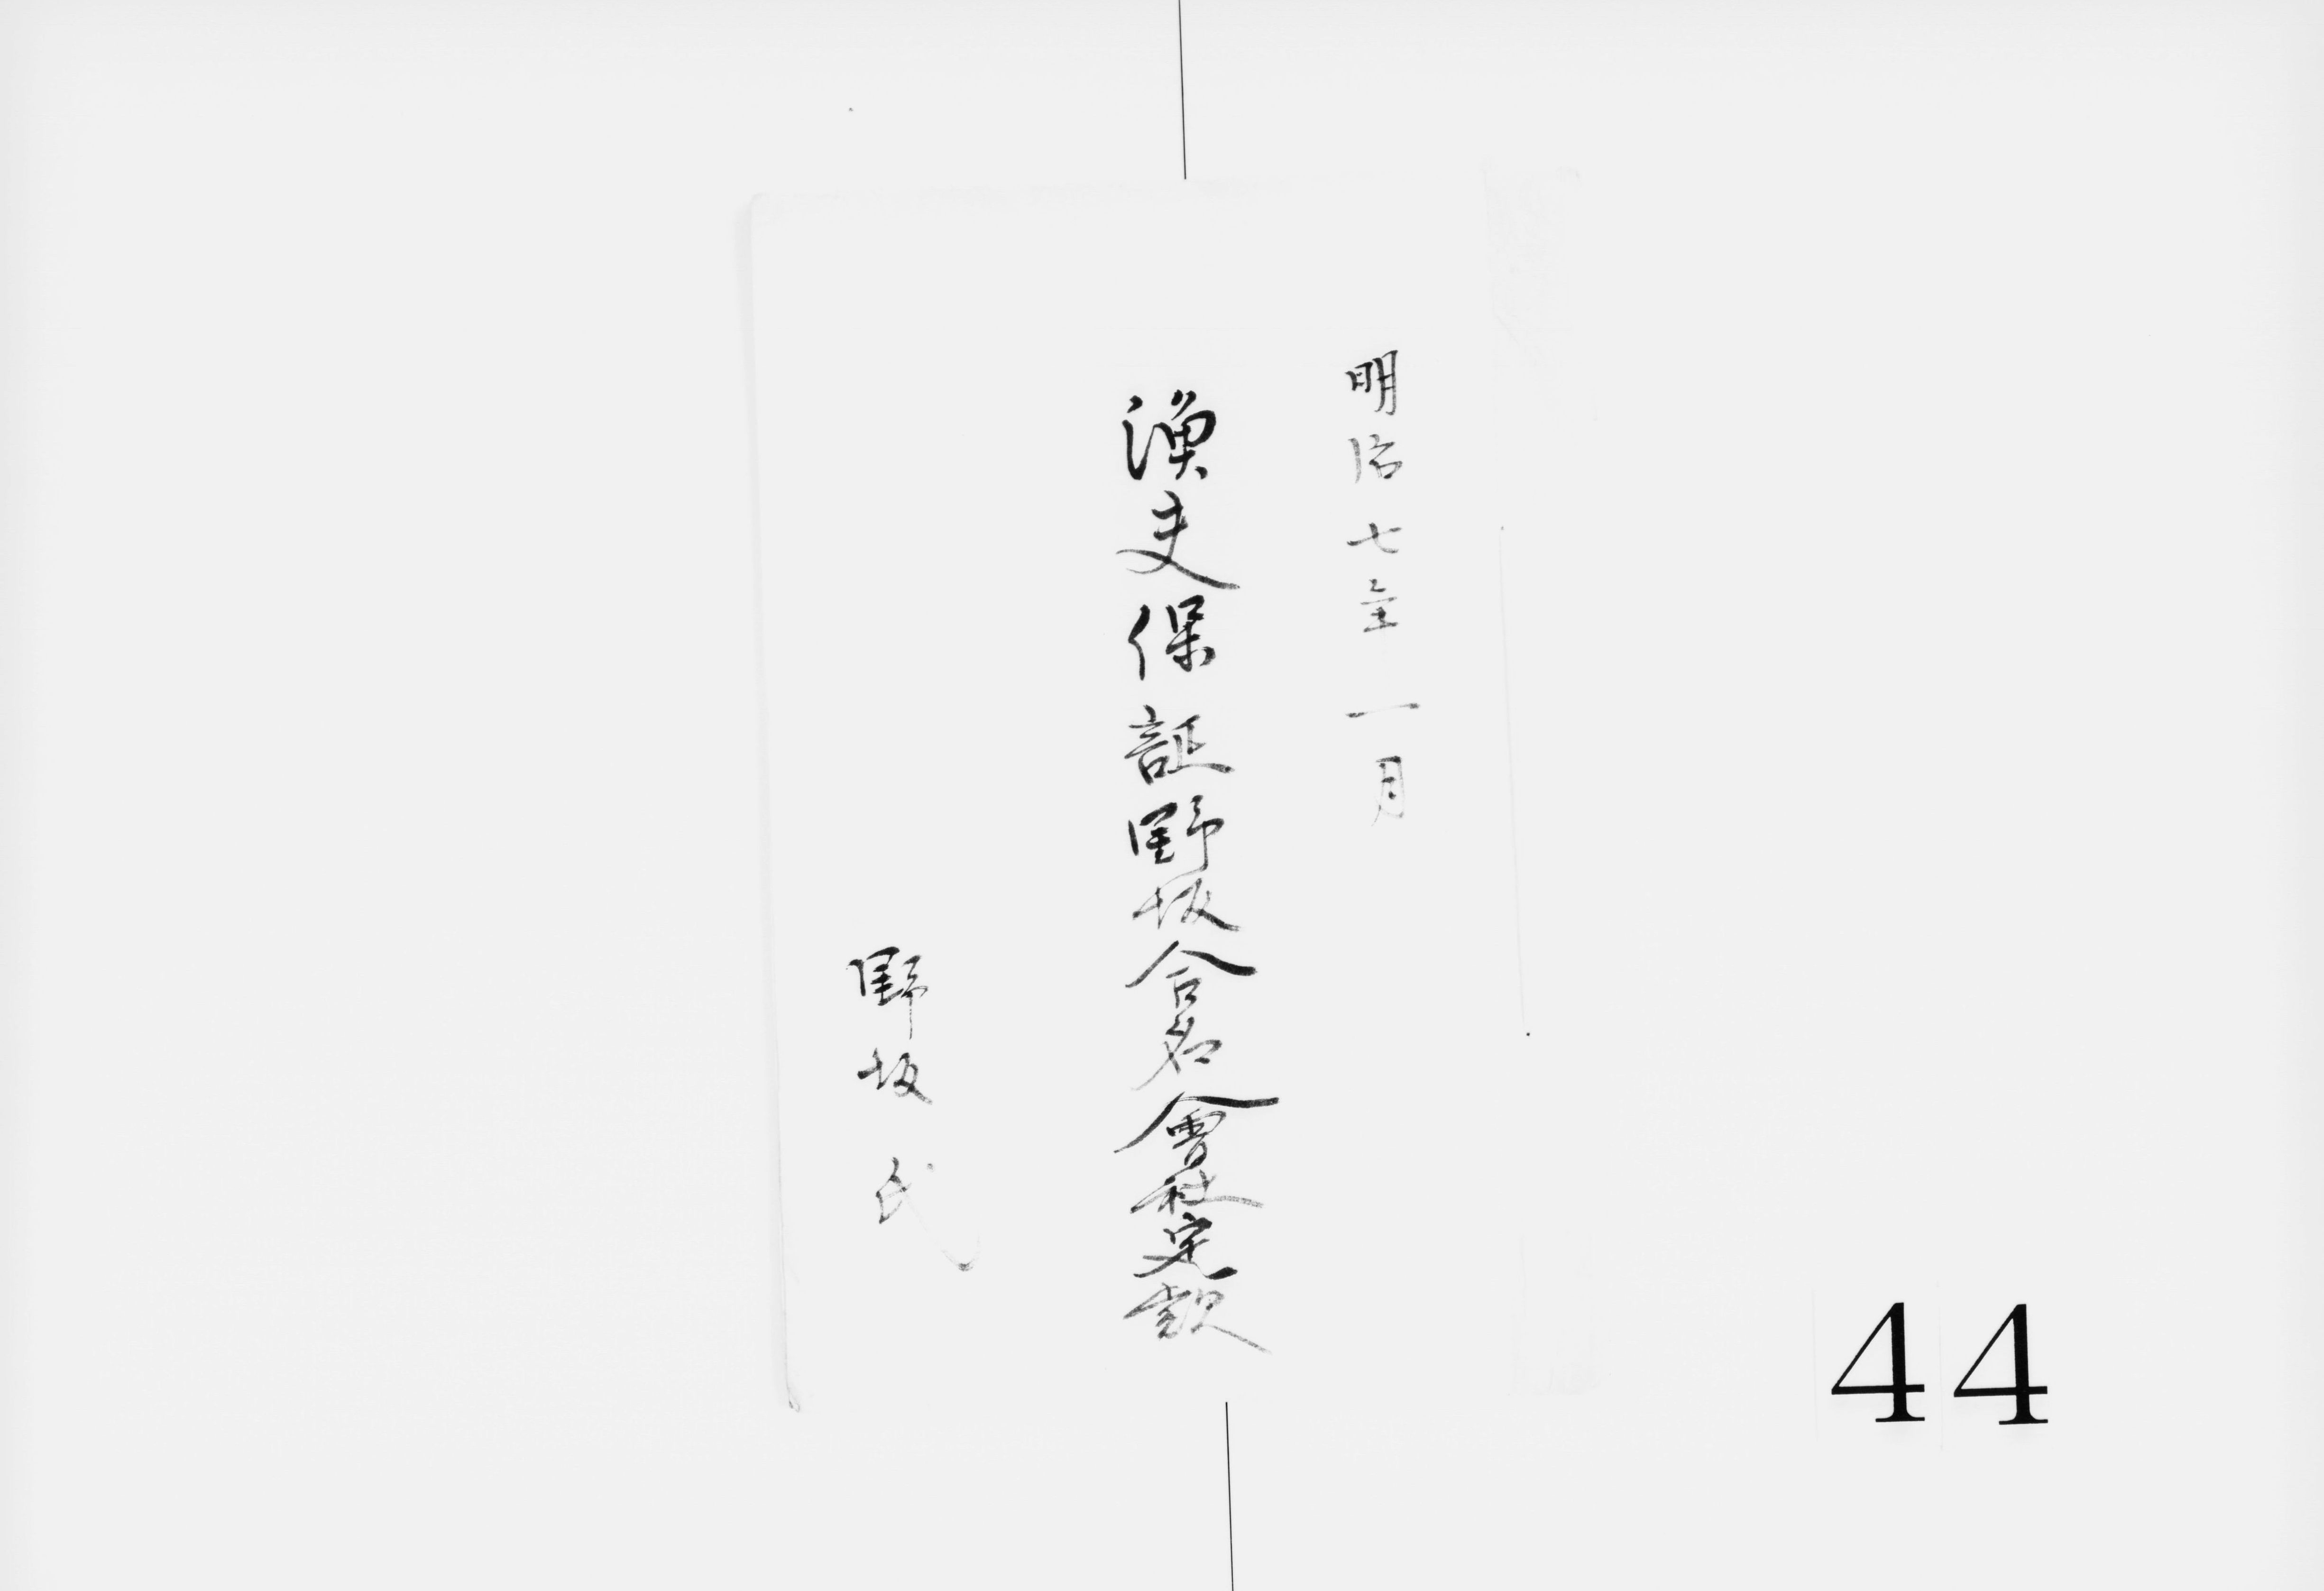 明治七年一月
漁夫保証野坂合名會社定款
野坂氏
44